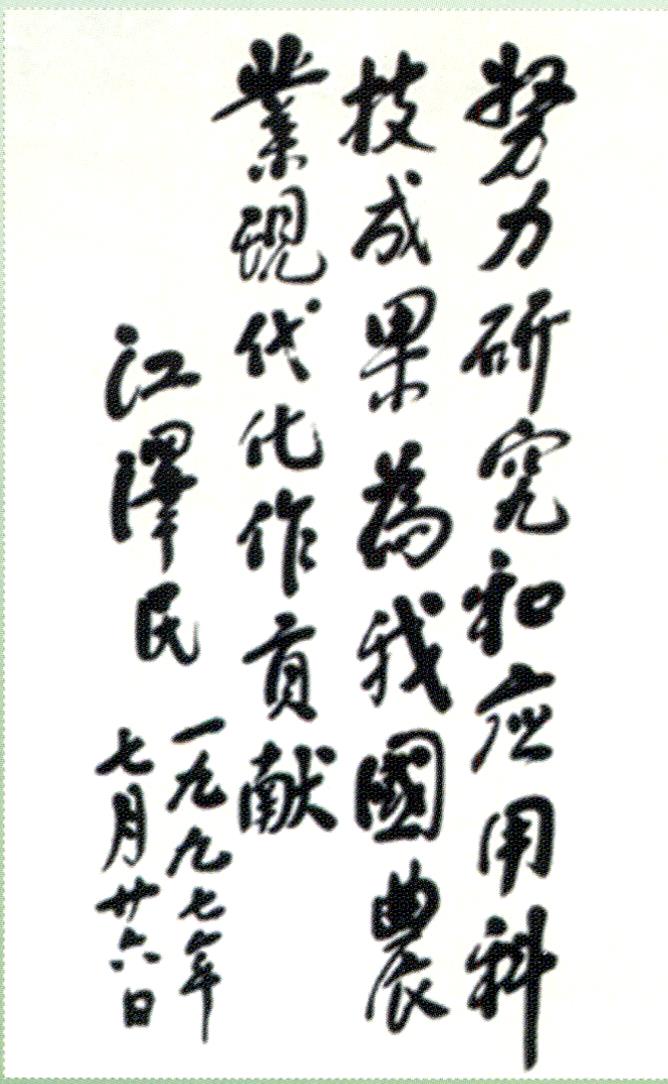 努力研究和应用科
技成果為我國農
業現代化作貢献
江澤民
一九九七年
七月廿六日